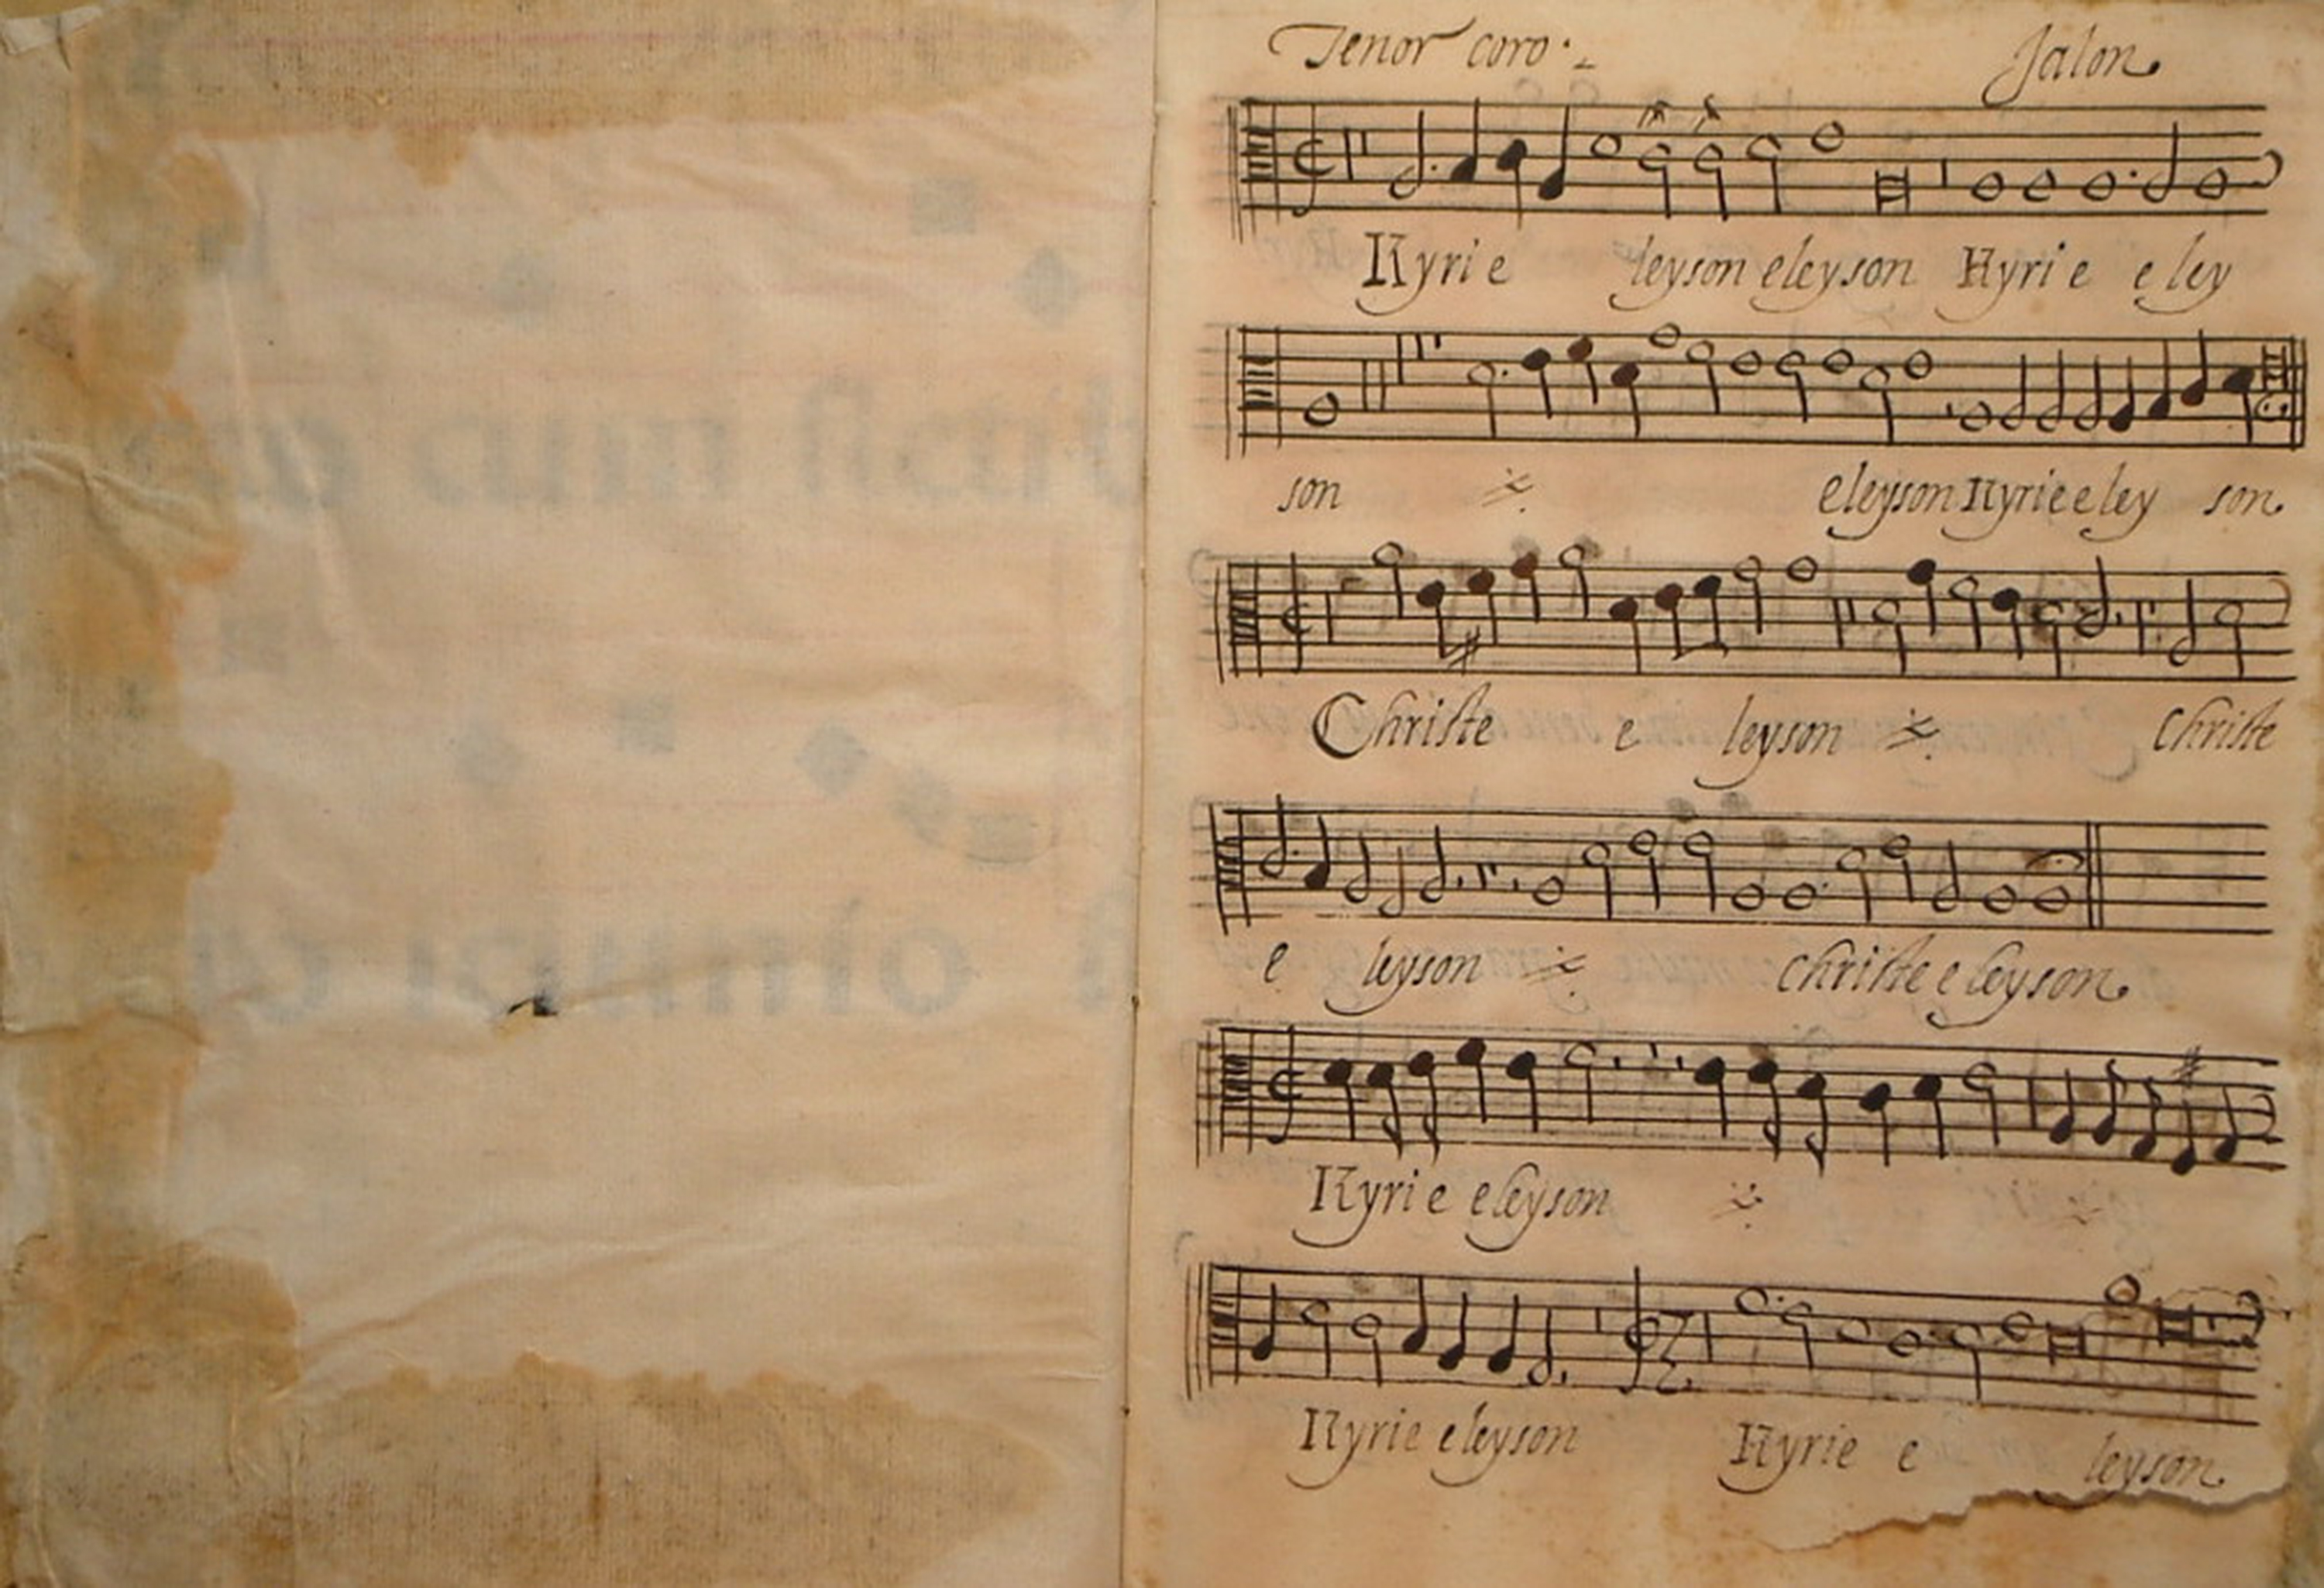 Tenor coro. Jalon
Kyrie leyson eleyson Kyrie eley
son eleyson Kyrie eley son
Christe e leyson Christe
e leyson Christe eleyson
Kyrie eleyson
Kyrie eleyson Kyrie e leyson